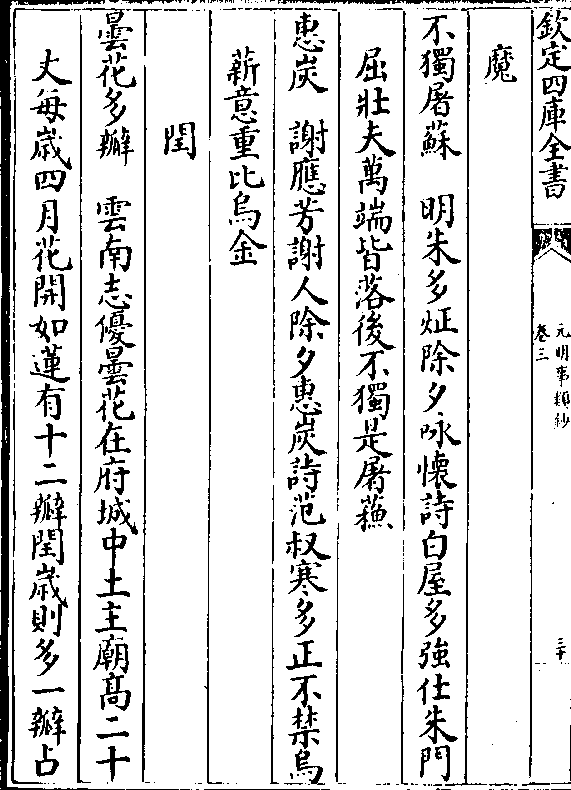 欽定四庫全書
元明事類鈔
卷三
三十
魔
不獨屠蘇　明朱多炡除夕咏懷詩白屋多強仕朱門
屈壯夫萬端皆落後不獨是屠蘓
惠炭　謝應芳謝人除夕惠炭詩范叔寒多正不禁烏
薪意重比烏金
閏
曇花多瓣　雲南志優曇花在府城中土主廟髙二十
丈每嵗四月花開如蓮有十二瓣閏嵗則多一瓣占